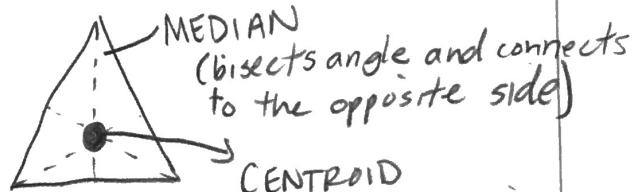 MEDIAN
(bisects angle and connects
to the opposite side)
CENTROID